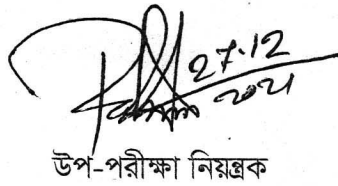 27.12
2021
উপ-পরীক্ষা নিয়ন্ত্রক